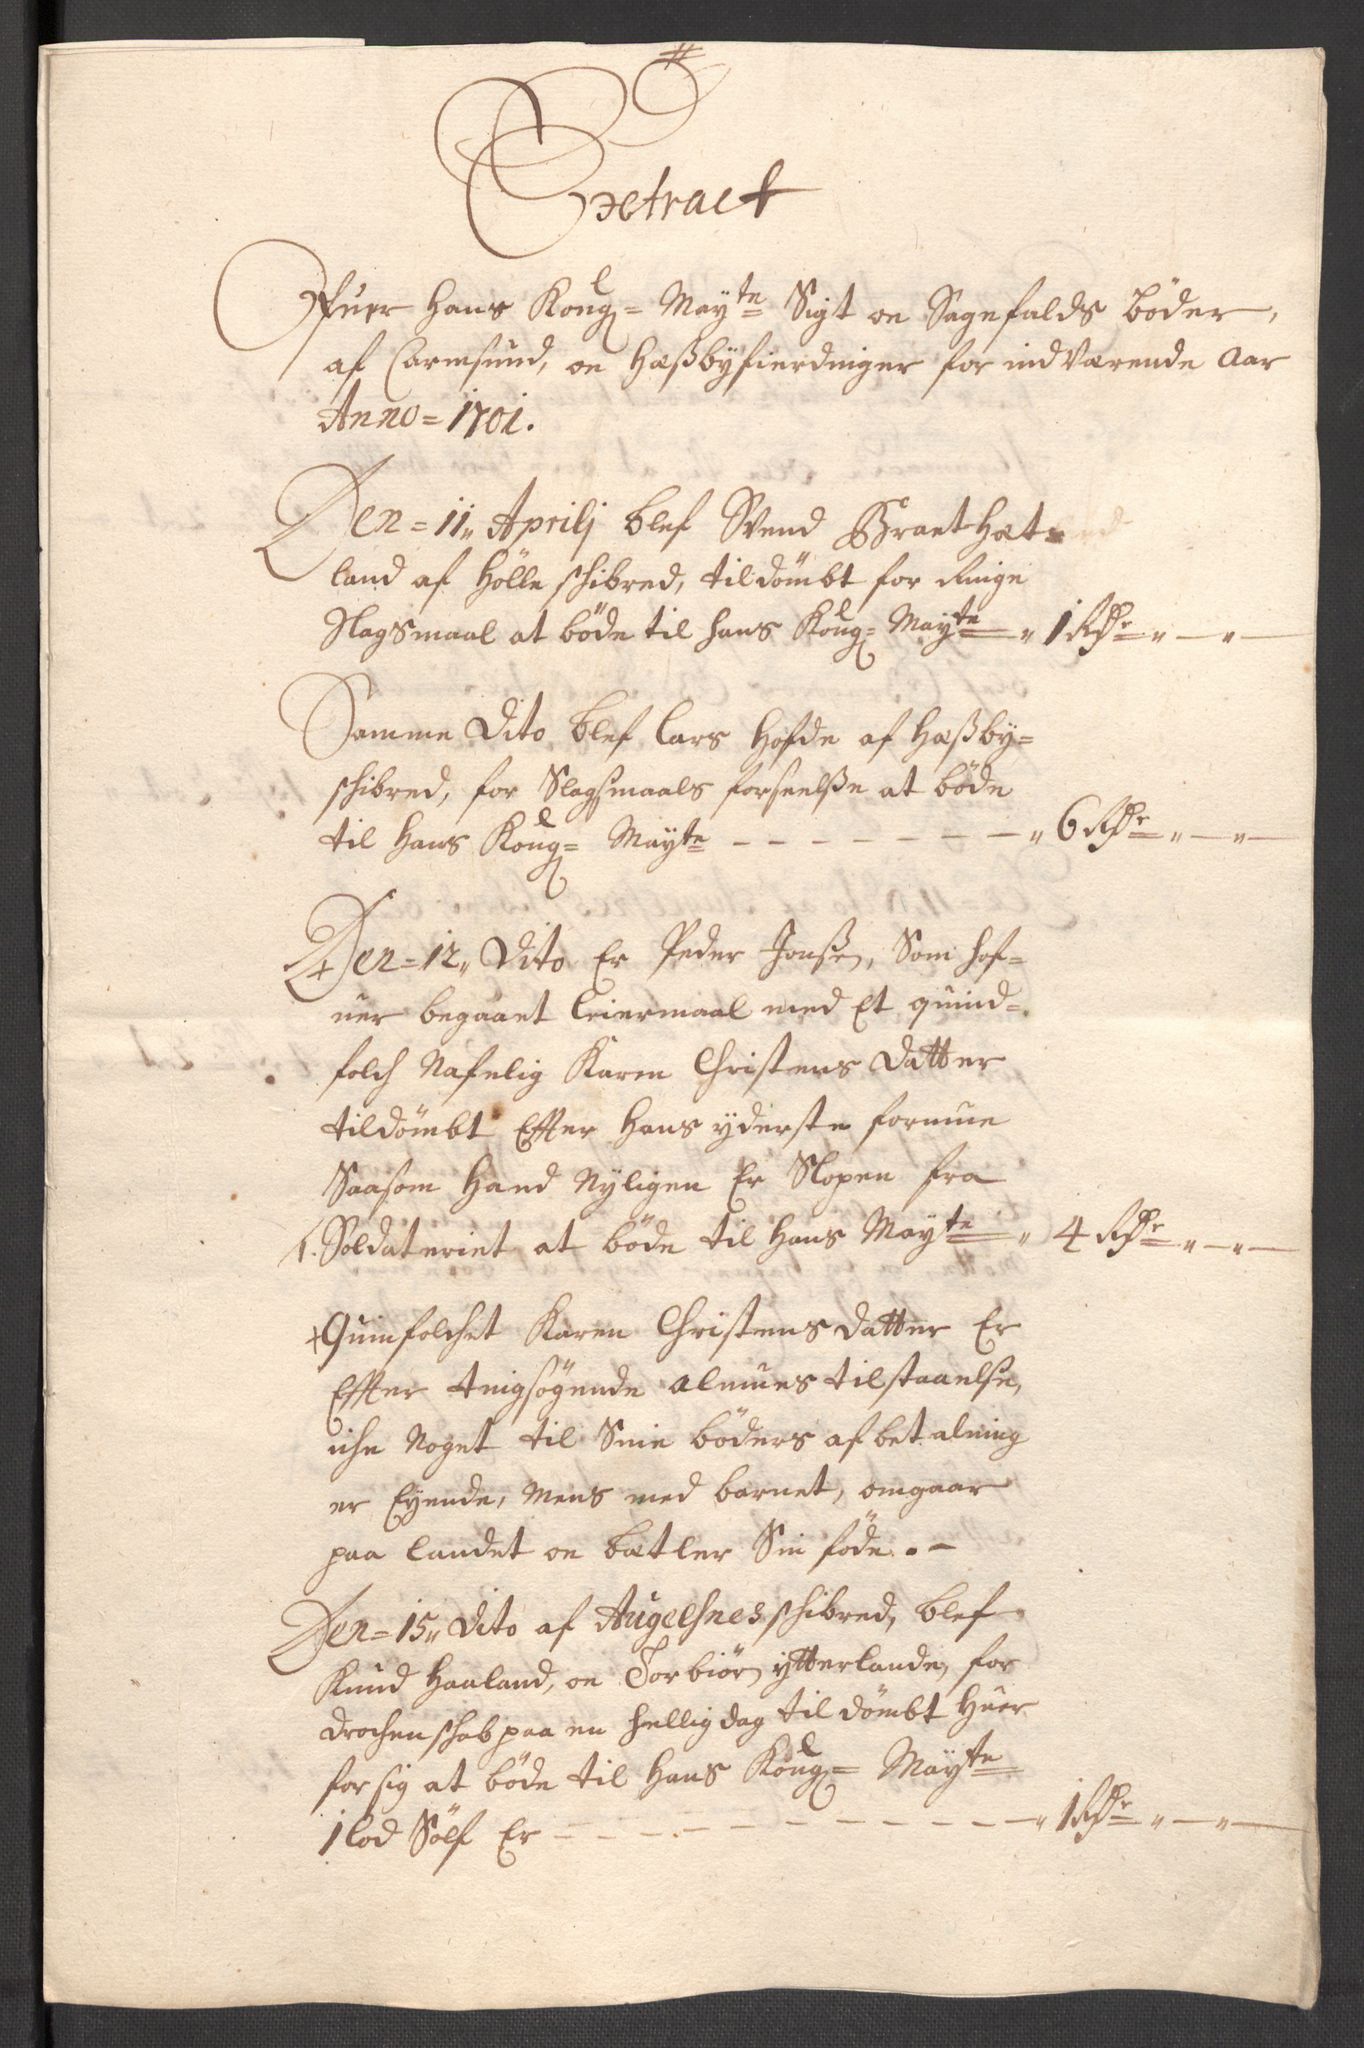 #
Extract
Ofuer Hans Kongl= Mayte Sigt oc Sagefalds böder,
af Carmsund, oc Hæßbyfierdinger for indværende Aar
Anno= 1701.
Den= 11„ Aprilj blef Svend Braethæt=
land af Hölle schibred, tildömbt for Ringe
Slagsmaal at böde til hans Kongl= Mayte „ 1 Rdr „ — „ —
Samme Dito blef Lars Hofde af Hæßby=
schibred, for Slagsmaals forseelße at böde
til Hans Kongl= Mayte - - - - - - - „ 6 Rdr „ — „ —
Den= 12„ Dito Er Peder Jonßen, Som hof=
uer begaaet Leiermaal med Et quind=
folch Nafnlig Karen Christens Datter
tildömbt Effter Hans yderste formue
Saasom Hand Nyligen Er Slopen fra
1. Soldateriet at böde til Hans Mayte „ 4 Rdr „ — „ —
+ Quinfolchet Karen Christensdatter Er
Effter tingsögende Almues tilstaaelse,
iche Noget til Sine böders afbetalning
er Eyende, Mens med barnet, omgaar
paa landet oc bætler Sin föde. -
Den= 15„ Dito af Augelsnes schibred, blef
Knud Haaland, oc Torbiörn ytterlande, for
drochenschab paa en hellig dag til dömbt Huer
for sig at böde til Hans Kongl= Mayte
1 lod Sölf Er - - - - - - - - - - - „ 1 Rdr „ — „ —